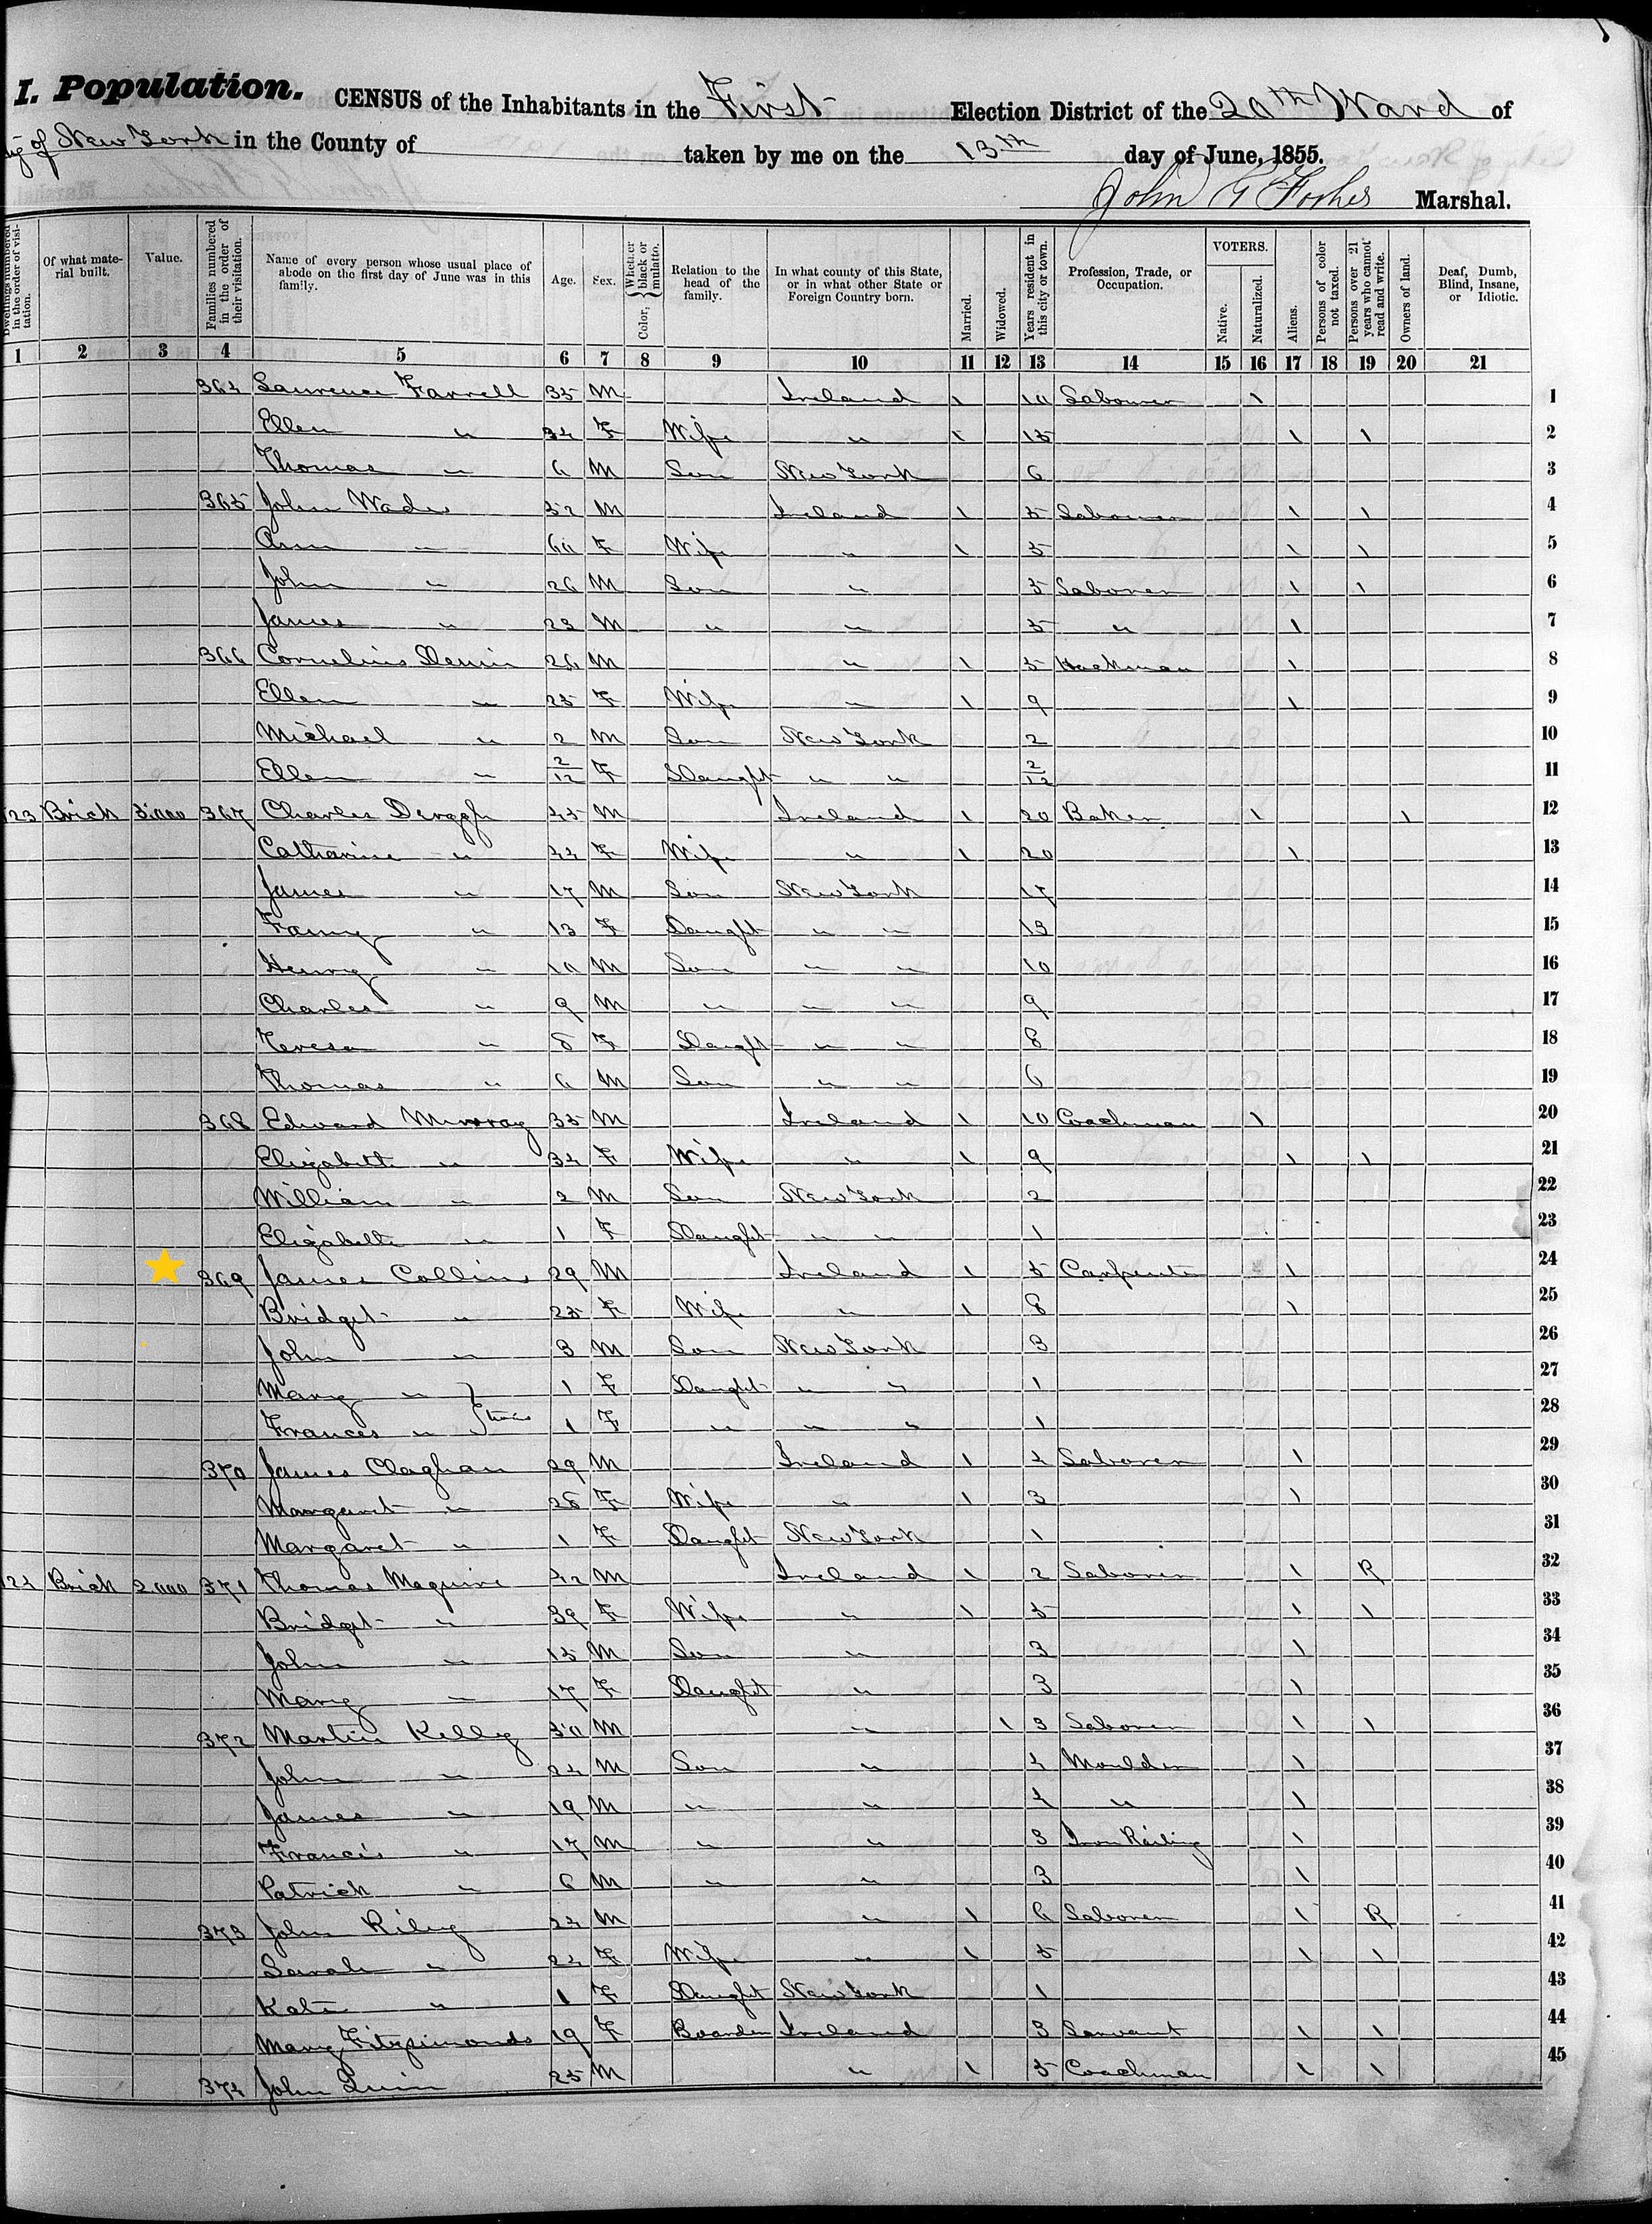 I. Population. CENSUS of the Inhabitants in the First Election District of the 20th Ward of
City of New York in the County of taken by me on the 13th day of June, 1855.
John Marshal.
Dwellings numbered in the order of visitation. Of what material built. Value. Families numbered in the order of their visitation. Name of every person whose usual place of abode on the first day of June was in this family. Age. Sex. Color, Whether black or mulatto. Relation to the head of the family. In what county of this State, or in what other State or Foreign Country born. Married. Widowed. Years resident in this city or town. Profession, Trade, or Occupation. VOTERS. Native. Naturalized. Aliens. Persons of color not taxed. Persons over 21 years who cannot read and write. Owners of land. Deaf, Dumb, Blind, Insane, or Idiotic.
1 2 3 4 5 6 7 8 9 10 11 12 13 14 15 16 17 18 19 20 21
364 Laurence Farrell 35 M Ireland 1 10 Labourer 1 1
Ellen " 34 F Wife " 1 15 1 1 2
Thomas " 6 M Son New York 6 3
365 John Wade 52 M Ireland 1 5 Labourer 1 1 4
Ann " 60 F Wife " 1 5 1 1 5
John " 26 M Son " 5 Laborer 1 1 6
James " 23 M " " 5 " 1 7
366 Cornelius 26 M " 1 5 Hackman 1 8
Ellen " 25 F Wife " 1 9 1 9
Michael " 2 M Son New York 2 10
Ellen " 2/12 F Daught " " 2/12 11
123 Brick 5,000 367 Charles 45 M Ireland 1 20 Baker 1 1 12
Catharine " 44 F Wife " 1 20 1 13
James " 17 M Son New York 17 14
Fanny " 13 F Daught " " 13 15
Henry " 10 M Son " " 10 16
Charles " 9 M " " " 9 17
Teresa " 8 F Daught " " 8 18
Thomas " 6 M Son " " 6 19
368 Edward Murray 35 M Ireland 1 10 Coachman 1 20
Elizabeth " 34 F Wife " 1 9 1 1 21
William " 2 M Son New York 2 22
Elizabeth " 1 F Daught " " 1 23
369 James Collins 29 M Ireland 1 5 Carpenter 1 24
Bridget " 25 F Wife " 1 8 1 25
John " 3 M Son New York 3 26
Mary " 1 F Daught " " 1 27
Frances " } twins 1 F " " " 1 28
370 James Claghan 29 M Ireland 1 4 Laborer 1 29
Margaret " 26 F Wife " 1 3 1 30
Margaret " 1 F Daught New York 1 31
124 Brick 2,000 371 Thomas Maguire 42 M Ireland 1 2 Laborer 1 R 32
Bridget " 39 F Wife " 1 5 1 1 33
John " 15 M Son " 3 1 34
Mary " 17 F Daught " 3 1 35
372 Martin Kelly 50 M " 1 3 Laborer 1 1 36
John " 24 M Son " 4 Moulder 1 37
James " 19 M " " 4 " 1 38
Francis " 17 M " " 3 Iron Railing 1 39
Patrick " 6 M " " 3 1 40
373 John Riley 24 M " 1 6 Laborer 1 R 41
Sarah " 24 F Wife " 1 5 1 1 42
Kate " 1 F Daught New York 1 43
Mary Fitzsimonds 19 F Boarder Ireland 3 Servant 1 1 44
374 John Quin 25 M " 1 5 Coachman 1 1 45